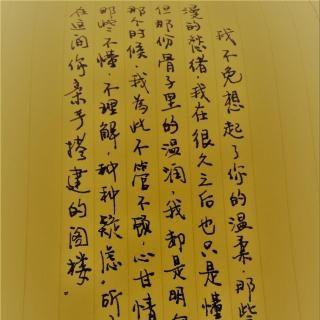 我不免想起了你的温柔，那些
漫的愁绪我在很久之后也只是懂
但那份骨子里的温润，我却是明
那个时候，我为此不管不顾，心甘情
那些不懂，不理解，种种疑虑，所
在这间你亲手搭建的阁楼。